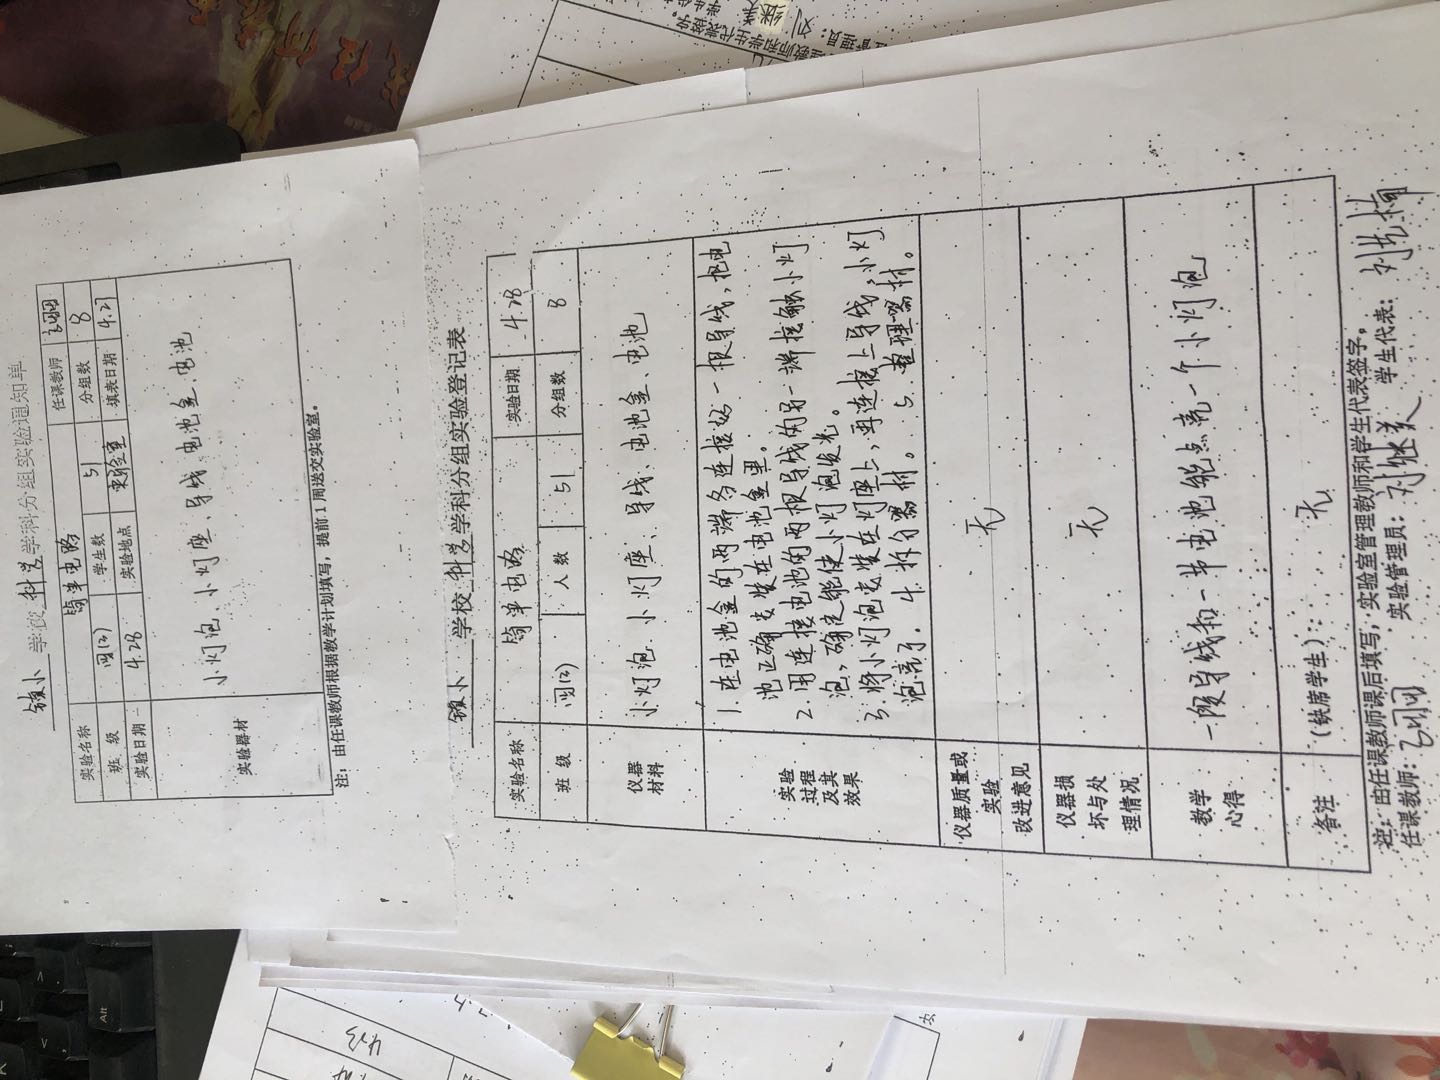 镇小 学校 科学 学科分组实验通知单
实验名称 简单电路 任课教师
班 级 四(2) 学生数 51 分组数 8
实验日期 4.28 实验地点 实验室 填表日期 4.21
实验器材 小灯泡、小灯座、导线、电池盒、电池
注：由任课教师根据教学计划填写，提前1周送交实验室。
镇小 学校 科学 学科分组实验登记表
实验名称 简单电路 实验日期 4.28
班 级 四(2) 人 数 51 分组数 8
仪器
材料
小灯泡、小灯座、导线、电池盒、电池
实验
过程
及其
效果
1. 在电池盒的两端各连接好一根导线，把电
池正确安装在电池盒里。
2. 用连接电池的两根导线的另一端接触小灯
泡，确定能使小灯泡发光。
3. 将小灯泡安装在灯座上，再连接上导线，小灯
泡亮了。4. 拆分器材。5. 整理器材。
仪器质量或
实验
改进意见
无
仪器损
坏与处
理情况
无
教学
心得
一段导线和一节电池能点亮一个小灯泡
备注 (缺席学生)： 无
注：由任课教师课后填写，实验室管理教师和学生代表签字。
任课教师： 实验管理员：刘继美 学生代表：